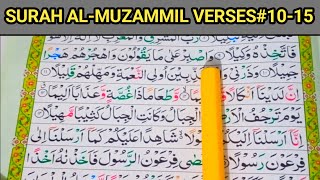 SURAH AL-MUZAMMIL VERSES#10-15
فَاتَّخِذْهُ وَكِيْلًا وَاصْبِرْ عَلٰى مَا يَقُوْلُوْنَ وَاهْجُرْهُمْ هَجْرًا
جَمِيْلًا وَذَرْنِيْ اُولِى النَّعْمَةِ وَمَهِّلْهُمْ قَلِيْلًا
اِنَّ لَدَيْنَآ اَنْكَالًا وَّطَعَامًا غُصَّةٍ وَّعَذَابًا اَلِيْمًا
يَوْمَ تَرْجُفُ الْاَرْضُ الْجِبَالُ كَثِيْبًا مَّهِيْلًا
اِنَّآ اَرْسَلْنَآ اِلَيْكُمْ رَسُوْلًا شَاهِدًا عَلَيْكُمْ كَمَآ اَرْسَلْنَآ اِلٰى
فِرْعَوْنَ رَسُوْلًا فِرْعَوْنُ الرَّسُوْلَ فَاَخَذْنٰهُ اَخْذًا